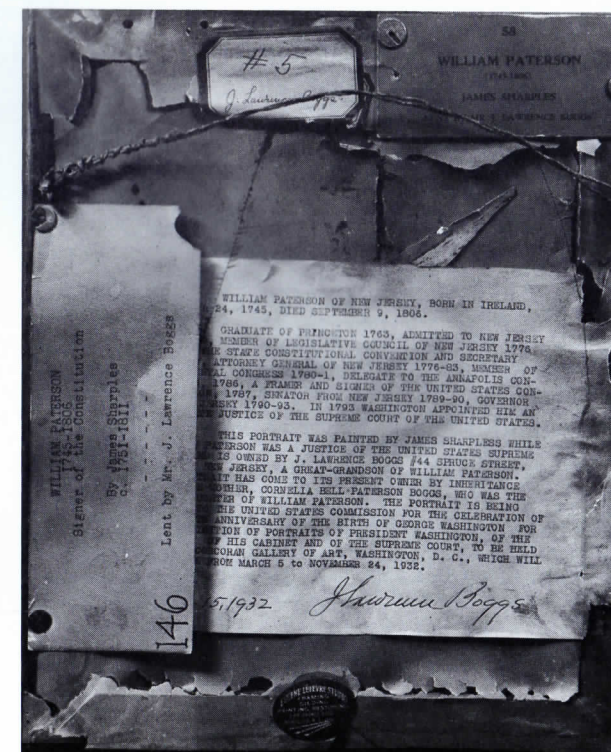 # 5
J. Lawrence Boggs
58
WILLIAM PATERSON
JAMES SHARPLES
J. LAWRENCE BOGGS
WILLIAM PATERSON
1745-1806
Signer of the Constitution
By James Sharples
c.1751-1811
Lent by Mr. J. Lawrence Boggs
146
WILLIAM PATERSON OF NEW JERSEY, BORN IN IRELAND,
24, 1745, DIED SEPTEMBER 9, 1806.
GRADUATE OF PRINCETON 1763, ADMITTED TO NEW JERSEY
MEMBER OF LEGISLATIVE COUNCIL OF NEW JERSEY 1776
STATE CONSTITUTIONAL CONVENTION AND SECRETARY
ATTORNEY GENERAL OF NEW JERSEY 1776-83, MEMBER OF
AL CONGRESS 1780-1, DELEGATE TO THE ANNAPOLIS CON-
1786, A FRAMER AND SIGNER OF THE UNITED STATES CON-
1787, SENATOR FROM NEW JERSEY 1789-90, GOVERNOR
RSEY 1790-93. IN 1793 WASHINGTON APPOINTED HIM AN
JUSTICE OF THE SUPREME COURT OF THE UNITED STATES.
THIS PORTRAIT WAS PAINTED BY JAMES SHARPLESS WHILE
PATERSON WAS A JUSTICE OF THE UNITED STATES SUPREME
IS OWNED BY J. LAWRENCE BOGGS #44 SPRUCE STREET,
NEW JERSEY, A GREAT-GRANDSON OF WILLIAM PATERSON.
AIT HAS COME TO ITS PRESENT OWNER BY INHERITANCE
OTHER, CORNELIA BELL-PATERSON BOGGS, WHO WAS THE
TER OF WILLIAM PATERSON. THE PORTRAIT IS BEING
THE UNITED STATES COMMISSION FOR THE CELEBRATION OF
ANNIVERSARY OF THE BIRTH OF GEORGE WASHINGTON FOR
ITION OF PORTRAITS OF PRESIDENT WASHINGTON, OF THE
OF HIS CABINET AND OF THE SUPREME COURT, TO BE HELD
CORCORAN GALLERY OF ART, WASHINGTON, D. C., WHICH WILL
FROM MARCH 5 to NOVEMBER 24, 1932.
15, 1932 J Lawrence Boggs